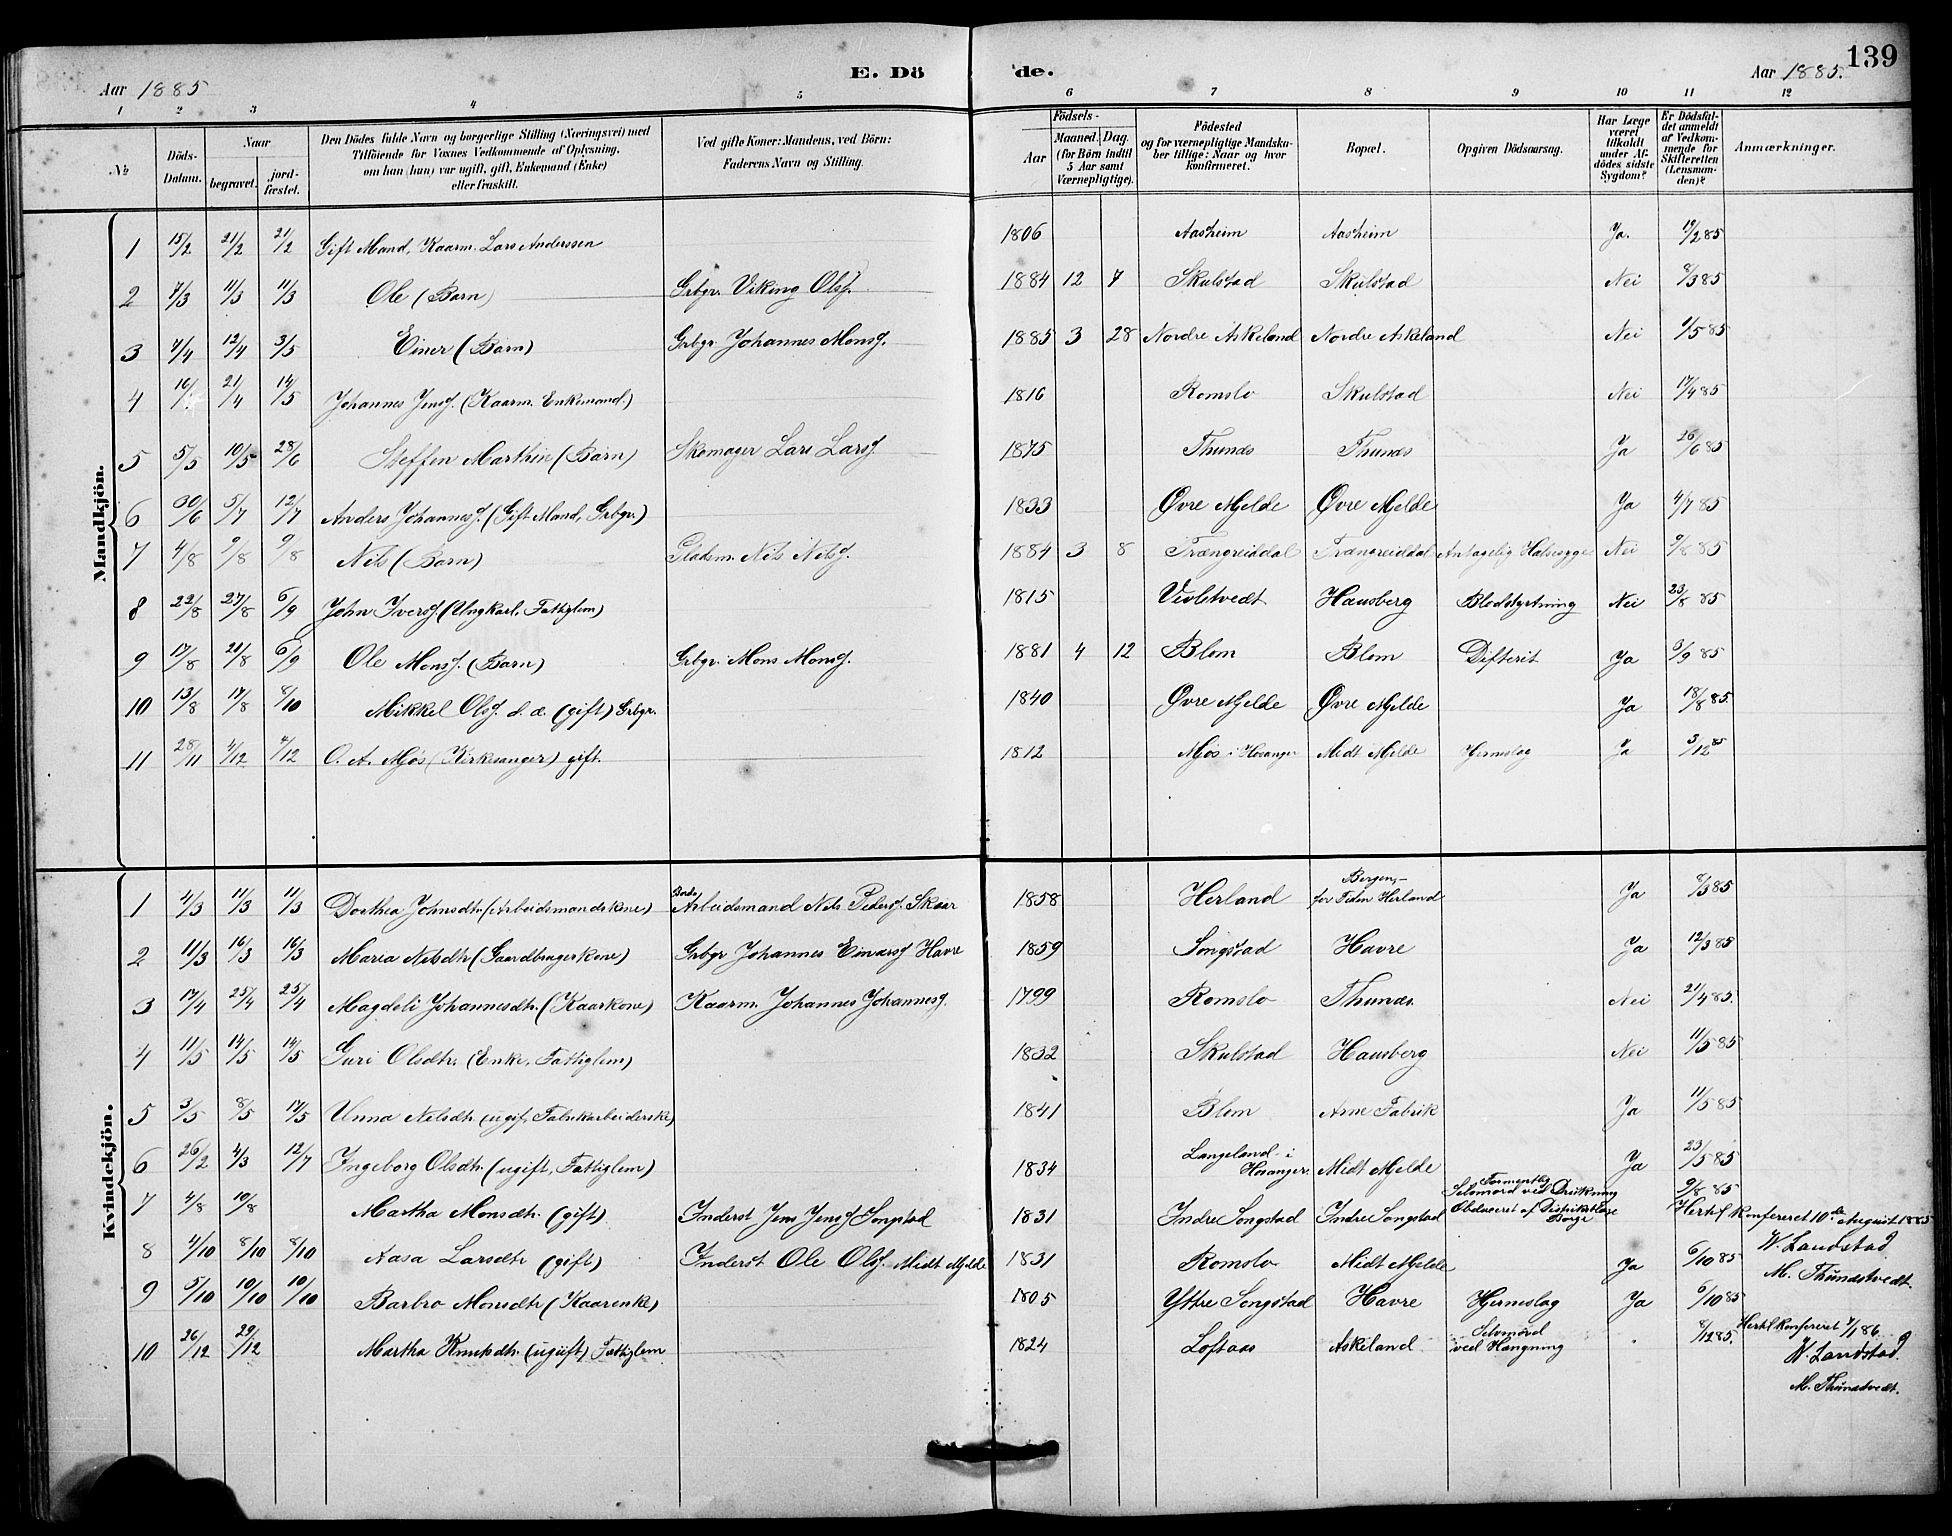 139
E. Döde.
Aar 1885
Aar 1885.
1 2 3 4 5 6 7 8 9 10 11 12
№
Döds-Datum.
Naar
begravet.
jord-fæstet.
Den Dödes fulde Navn og borgerlige Stilling (Næringsvei) med
Tilföiende for Voxnes Vedkommende af Oplysning,
om han (hun) var ugift, gift, Enkemand (Enke)
eller fraskilt.
Ved gifte Koner: Mandens, ved Börn:
Faderens Navn og Stilling.
Födsels-
Aar
Maaned. Dag.
(for Börn indtil
5 Aar samt
Værnepligtige).
Födested
og for værnepligtige Mandska-
ber tillige: Naar og hvor
konfirmeret.
Bopæl.
Opgiven Dödsaarsag.
Har Læge
været
tilkaldt
under Af-
dödes sidste
Sygdom?
Er Dödsfal-
det anmeldt
af Vedkom-
mende for
Skifteretten
(Lensman-
den)?
Anmærkninger.
Mandkjön.
1 15/2 21/2 21/2 Gift Mand, Kaarm. Lars Anderssen 1806 Aasheim Aasheim Ja. 19/2 85
2 7/3 11/3 11/3 Ole (Barn) Grbgr. Viking Olss. 1884 12 7 Skulstad Skulstad Nei 8/3 85
3 4/4 12/4 3/5 Einer (Barn) Grbgr. Johannes Monss. 1885 3 28 Nordre Askeland Nordre Askeland Nei 1/5 85
4 16/4 21/4 14/5 Johannes Jenss. (Kaarm. Enkemand) 1816 Romslo Skulstad Nei 17/4 85
5 5/5 10/5 28/6 Steffen Marthin (Barn) Skomager Lars Larss. 1875 Thunæs Thunæs Ja 26/6 85
6 30/6 5/7 12/7 Anders Johanness. (Gift Mand, Grbgr.) 1833 Øvre Mjelde Øvre Mjelde Ja 4/7 85
7 4/8 9/8 9/8 Nils (Barn) Pladsm. Nils Nilss. 1884 3 8 Trængreiddal Trængreiddal Antagelig Halssyge Nei 9/8 85
8 22/8 27/8 6/9 John Iverss. (Ungkarl, Fattiglem) 1815 Hausberg Blodstyrtning Nei 23/8 85
9 17/8 21/8 6/9 Ole Monss. (Barn) Grbgr. Mons Monss. 1881 4 12 Blom Blom Difterit Ja 3/9 85
10 13/8 17/8 8/10 Mikkel Olss. d. æ. (gift) Grbgr. 1840 Øvre Mjelde Øvre Mjelde Ja 18/8 85.
11 28/11 4/12 4/12 O. A. Mjøs (Kirkesanger) gift. 1812 Mjøs i Hosanger Midt Mjelde Hjerneslag Ja 3/12 85
Kvindekjön.
1 4/3 11/3 11/3 Dorthea Johnsdtr. (Arbeidsmandskone) Arbeidsmand Nils Pederss. Skaar 1858 Herland Bergen, for Tiden Herland Ja 8/3 85
2 11/3 16/3 16/3 Maria Nilsdtr. (Gaardbrugerkone) Grbgr Johannes Einarss. Havre 1859 Songstad Havre Ja 12/3 85
3 17/4 25/4 25/4 Magdeli Johannesdtr. (Kaarkone) Kaarm. Johannes Johanness. 1799 Romslo Thunæs Nei 21/4 85.
4 11/5 14/5 14/5 Guri Olsdtr. (Enke, Fattiglem) 1832 Skulstad Hausberg Nei 11/5 85
5 3/5 8/5 17/5 Unna Nilsdtr (ugif, Fabrikarbeiderske) 1841 Blom Arne Fabrik Ja 11/5 85
6 26/2 4/3 12/7 Ingeborg Olsdtr. (ugift, Fattiglem) 1834 Langeland i Hosanger. Midt Mjelde Ja 23/5 85
7 4/8 10/8 Martha Monsdtr. (gift) Inderst Jens Jenss. Songstad 1831 Indre Songstad Indre Songstad Formentlig Selvmord ved Drukning Obduceret af Distriktslæge Borge 9/8 85 Hertil Konfereret 10de August 1885
W. Landstad
M. Thunæstvedt.
8 4/10 8/10 8/10 Aasa Larsdtr (gift) Inderst Ole Olss. Midt Mjelde 1831 Romslo Midt Mjelde Ja 6/10 85
9 5/10 10/10 10/10 Barbro Monsdtr (Kaarenke) 1805 Ytre Songstad Havre Hjerneslag Ja 6/10 85
10 26/12 29/12 Martha Knutsdtr. (ugift) Fattiglem 1824 Loftaas Askeland Selvmord ved Hængning 8/12 85. Hertil konfereret 7/1 86.
W. Landstad.
M. Thunæstvedt.